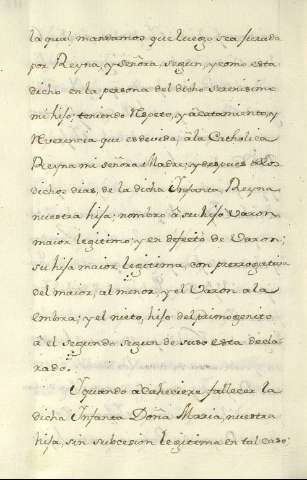 la qual mandamos que luego sea jurada
por Reyna, y señora, segun, y como esta
dicho en la persona del dicho serenisimo
mi hijo; teniendo Respeto, y acatamiento, y
Reverencia que es devida, â la Catholica
Reyna mi señora Madre; y despues de los
dichos dias, de la dicha Infanta, Reyna
nuestra hija; nombro â su hijo Varon
maior legitimo; y en defecto de Varon;
su hija maior legitima, con prerrogativa
del maior, al menor, y el Varon a la
embra; y el nieto, hijo del primogenito
â el segundo segun de suso esta decla
rado.
Y quando acahesiere fallecer la
dicha Infanta Doña Maria, nuestra
hija, sin subcesion legitima en tal caso;